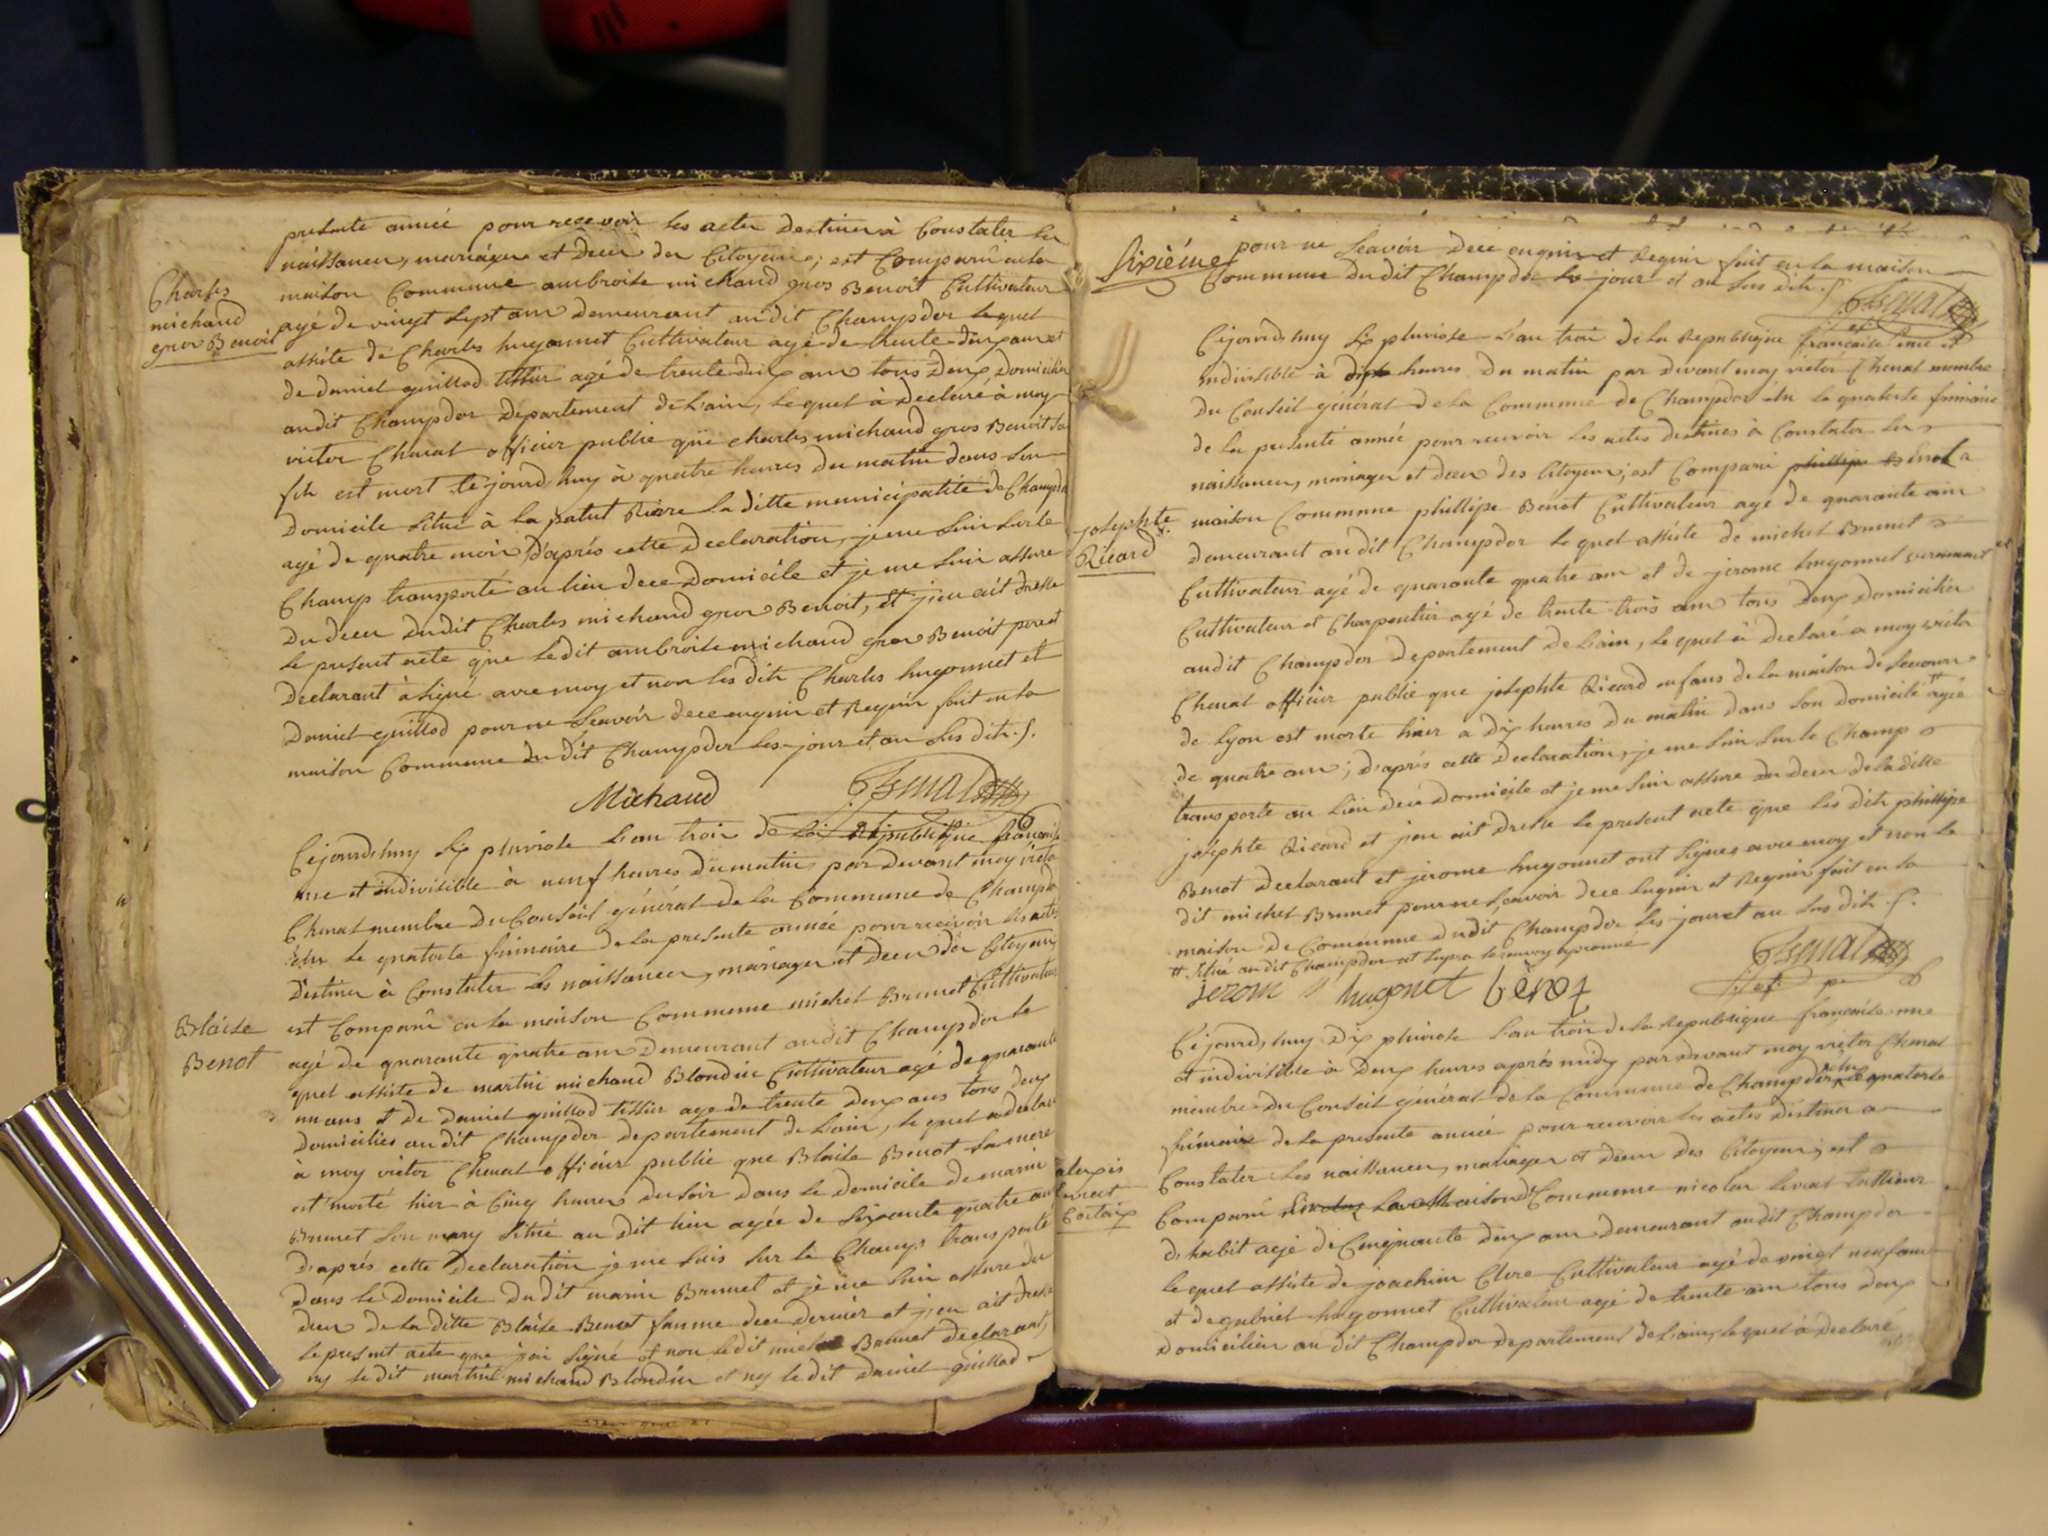 presente année pour recevoir les actes destinés à Constater les
naissances, mariages et deces des Citoyens; est Comparû en la
maison Commune ambroise michaud gros Benoit Cultivateur
Charles
michaud
gros Benoit
agé de vingt sept ans demeurant audit Champdor lequel
assisté de Charles hugonnet Cultivateur agé de trente deux ans et
de daniel guillod tissier agé de trente deux ans tous deux domiciliés
audit Champdor departement de L'ain, lequel à declaré à moy
victor Chenat officier public que charles michaud gros Benoit son
fils est mort cejourd'huy à quatre heures du matin dans son
domicile situé à la rière la ditte municipalité de Champdor
agé de quatre mois, d'aprés cette declaration, je me suis sur le
Champ transporté au lieu de ce domicile et je me suis assuré
du deces dudit Charles michaud gros Benoit, et j'en ait dressé
le present acte que ledit ambroise michaud gros Benoit pere et
declarant à signé avec moy et non les dits Charles hugonnet et
daniel guillod pour ne scavoir de ce enquis et requis fait en la
maison Commune du dit Champdor les jour et an sus dits.
Michaud
Cejourd'huy six pluviose L'an trois de la République française
une et indivisible à neuf heures du matin, par devant moy victor
Chenat membre du Conseil général de la Commune de Champdor
élu le quatorze frimaire de la presente année pour recevoir les actes
destinés à Constater les naissances, mariages et deces des Citoyens
est Comparû en la maison Commune michel Brunet Cultivateur
Blaise
Benot
agé de quarante quatre ans demeurant audit Champdor le
quel assisté de martin michaud Blondin Cultivateur agé de quarante
un ans et de daniel guillod tissier agé de trente deux ans tous deux
domiciliés audit Champdor departement de L'ain, le quel a declaré
à moy victor Chenat officier public que Blaise Benot sa mere
est morte hier à Cinq heures du soir dans le domicile de marin
Brunet son mary situé au dit lieu agée de soixante quatre ans
d'aprés cette declaration je me suis sur le Champ transporté
dans le domicile dudit marin Brunet et je me suis assuré du
deces de la ditte Blaise Benot famme de ce dernier et j'en ait dressé
le present acte que j'ai signé et non ledit michel Brunet declarant,
ny le dit martin michaud Blondin et ny le dit daniel guillod
Sixiéme
pour ne scavoir de ce enquis et requis fait en la maison
Commune du dit Champdor les jour et an sus dits.
Cejourd'huy six pluviose L'an trois de la Republique française une et
indivisible à dix heures du matin par devant moy victor Chenat membre
du Conseil général de la Commune de Champdor élu le quatorze frimaire
de la presente année pour recevoir les actes destinés à Constater les
naissances, mariages et deces des Citoyens; est Comparu phillipe Benot a
josephte
Ricard
maison Commune phillipe Benot Cultivateur agé de quarante ans
demeurant audit Champdor le quel assisté de michel Brunet
Cultivateur agé de quarante quatre ans et de jerome hugonnet
Cultivateur et Charpentier agé de trente trois ans tous deux domiciliés
audit Champdor departement de L'ain, le quel à declaré a moy victor
Chenat officier public que josephte Ricard enfans de la maison de secours
de Lyon est morte hier a dix heures du matin dans son domicile # agée
de quatre ans; d'aprés cette declaration, je me suis sur le Champ
transporté au Lieu de ce domicile et je me suis assuré du deces de la ditte
josephte Ricard et j'en ait dressé le present acte que les dits phillipe
Benot declarant et jerome hugonnet ont signés avec moy et non le
dit michel Brunet pour ne scavoir de ce enquis et requis fait en la
maison de Commune dudit Champdor les jour et an sus dits.
# situé audit Champdor et le renvoy aprouvé
jerom hugonet benot
Cejourd'huy dix pluviose L'an trois de la Republique française une
et indivisible à deux heures aprés midy par devant moy victor Chenat
membre du Conseil général de la Commune de Champdor élu le quatorze
frimaire de la presente année pour recevoir les actes destinés a
Constater les naissances, mariages et deces des Citoyens; est
alexis
Livrat
Comparu en la Maison Commune nicolas Livrat tallieur
d'habit agé de Cinquante deux ans demeurant audit Champdor
le quel assisté de joachim Clere Cultivateur agé de vingt neuf ans
et de gabriel hugonnet Cultivateur agé de trente ans tous deux
domiciliés au dit Champdor departement de L'ain, lequel à declaré